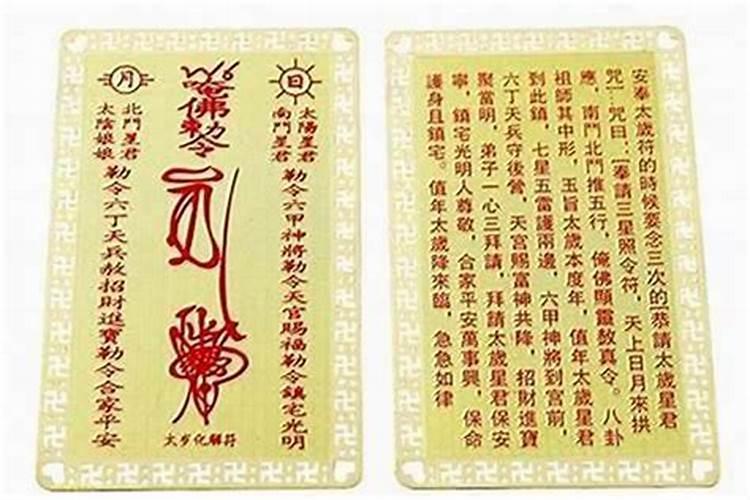 日
太陽星君
南鬥星君
勒令六甲神將勒令天官賜福勒令鎮宅光明
唵佛勅令
月
北鬥星君
太陰娘娘
勒令六丁天兵赦招財進寶勒令合家平安
太岁化解符
安奉太歲符的時候要念三次的[恭請太歲星君
咒]一咒曰:[奉請三星照令符,天上日月來拱
應,南鬥北鬥推五行,俺佛顯靈敎真令。八卦
祖師其中形,玉旨太歲本度年,值年太歲星君
到此鎮,七星五雷護兩邊,六甲神將到宮前,
六丁天兵守後營,天宮賜富神共降,招財進寶
聚當明,弟子一心三拜請,拜請太歲星君保安
寧,鎮宅光明人尊敬,合家平安萬事興,保命
護身且鎮宅。值年太歲降來臨,急急如律